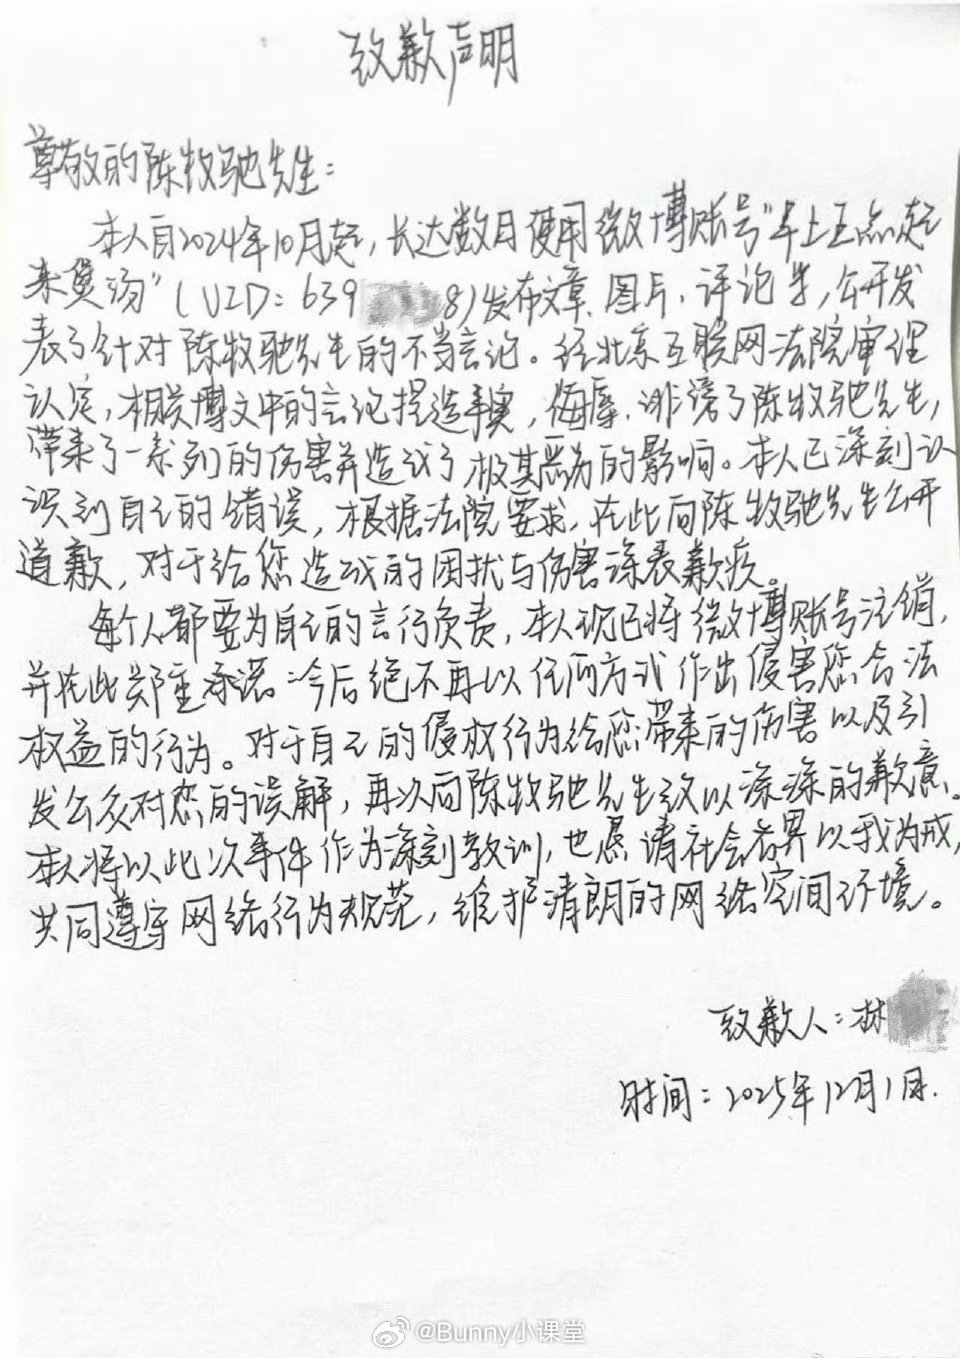 致歉声明
尊敬的陈牧驰先生：
本人自2024年10月起，长达数月使用微博账号"早上五点起
来煲汤"（UID：639 8）发布文章、图片、评论等，公开发
表了针对陈牧驰先生的不当言论。经北京互联网法院审理
认定，相关博文中的言论捏造事实，侮辱、诽谤了陈牧驰先生，
带来了一系列的伤害并造成了极其恶劣的影响。本人已深刻认
识到自己的错误，根据法院要求，在此向陈牧驰先生公开
道歉，对于给您造成的困扰与伤害深表歉疚。
每个人都要为自己的言行负责，本人现已将微博账号注销，
并在此郑重承诺：今后绝不再以任何方式作出侵害您合法
权益的行为。对于自己的侵权行为给您带来的伤害以及引
发公众对您的误解，再次向陈牧驰先生致以深深的歉意。
本人将以此次事件作为深刻教训，也恳请社会各界以我为戒，
共同遵守网络行为规范，维护清朗的网络空间环境。
致歉人：林
时间：2025年12月1日.
@Bunny小课堂